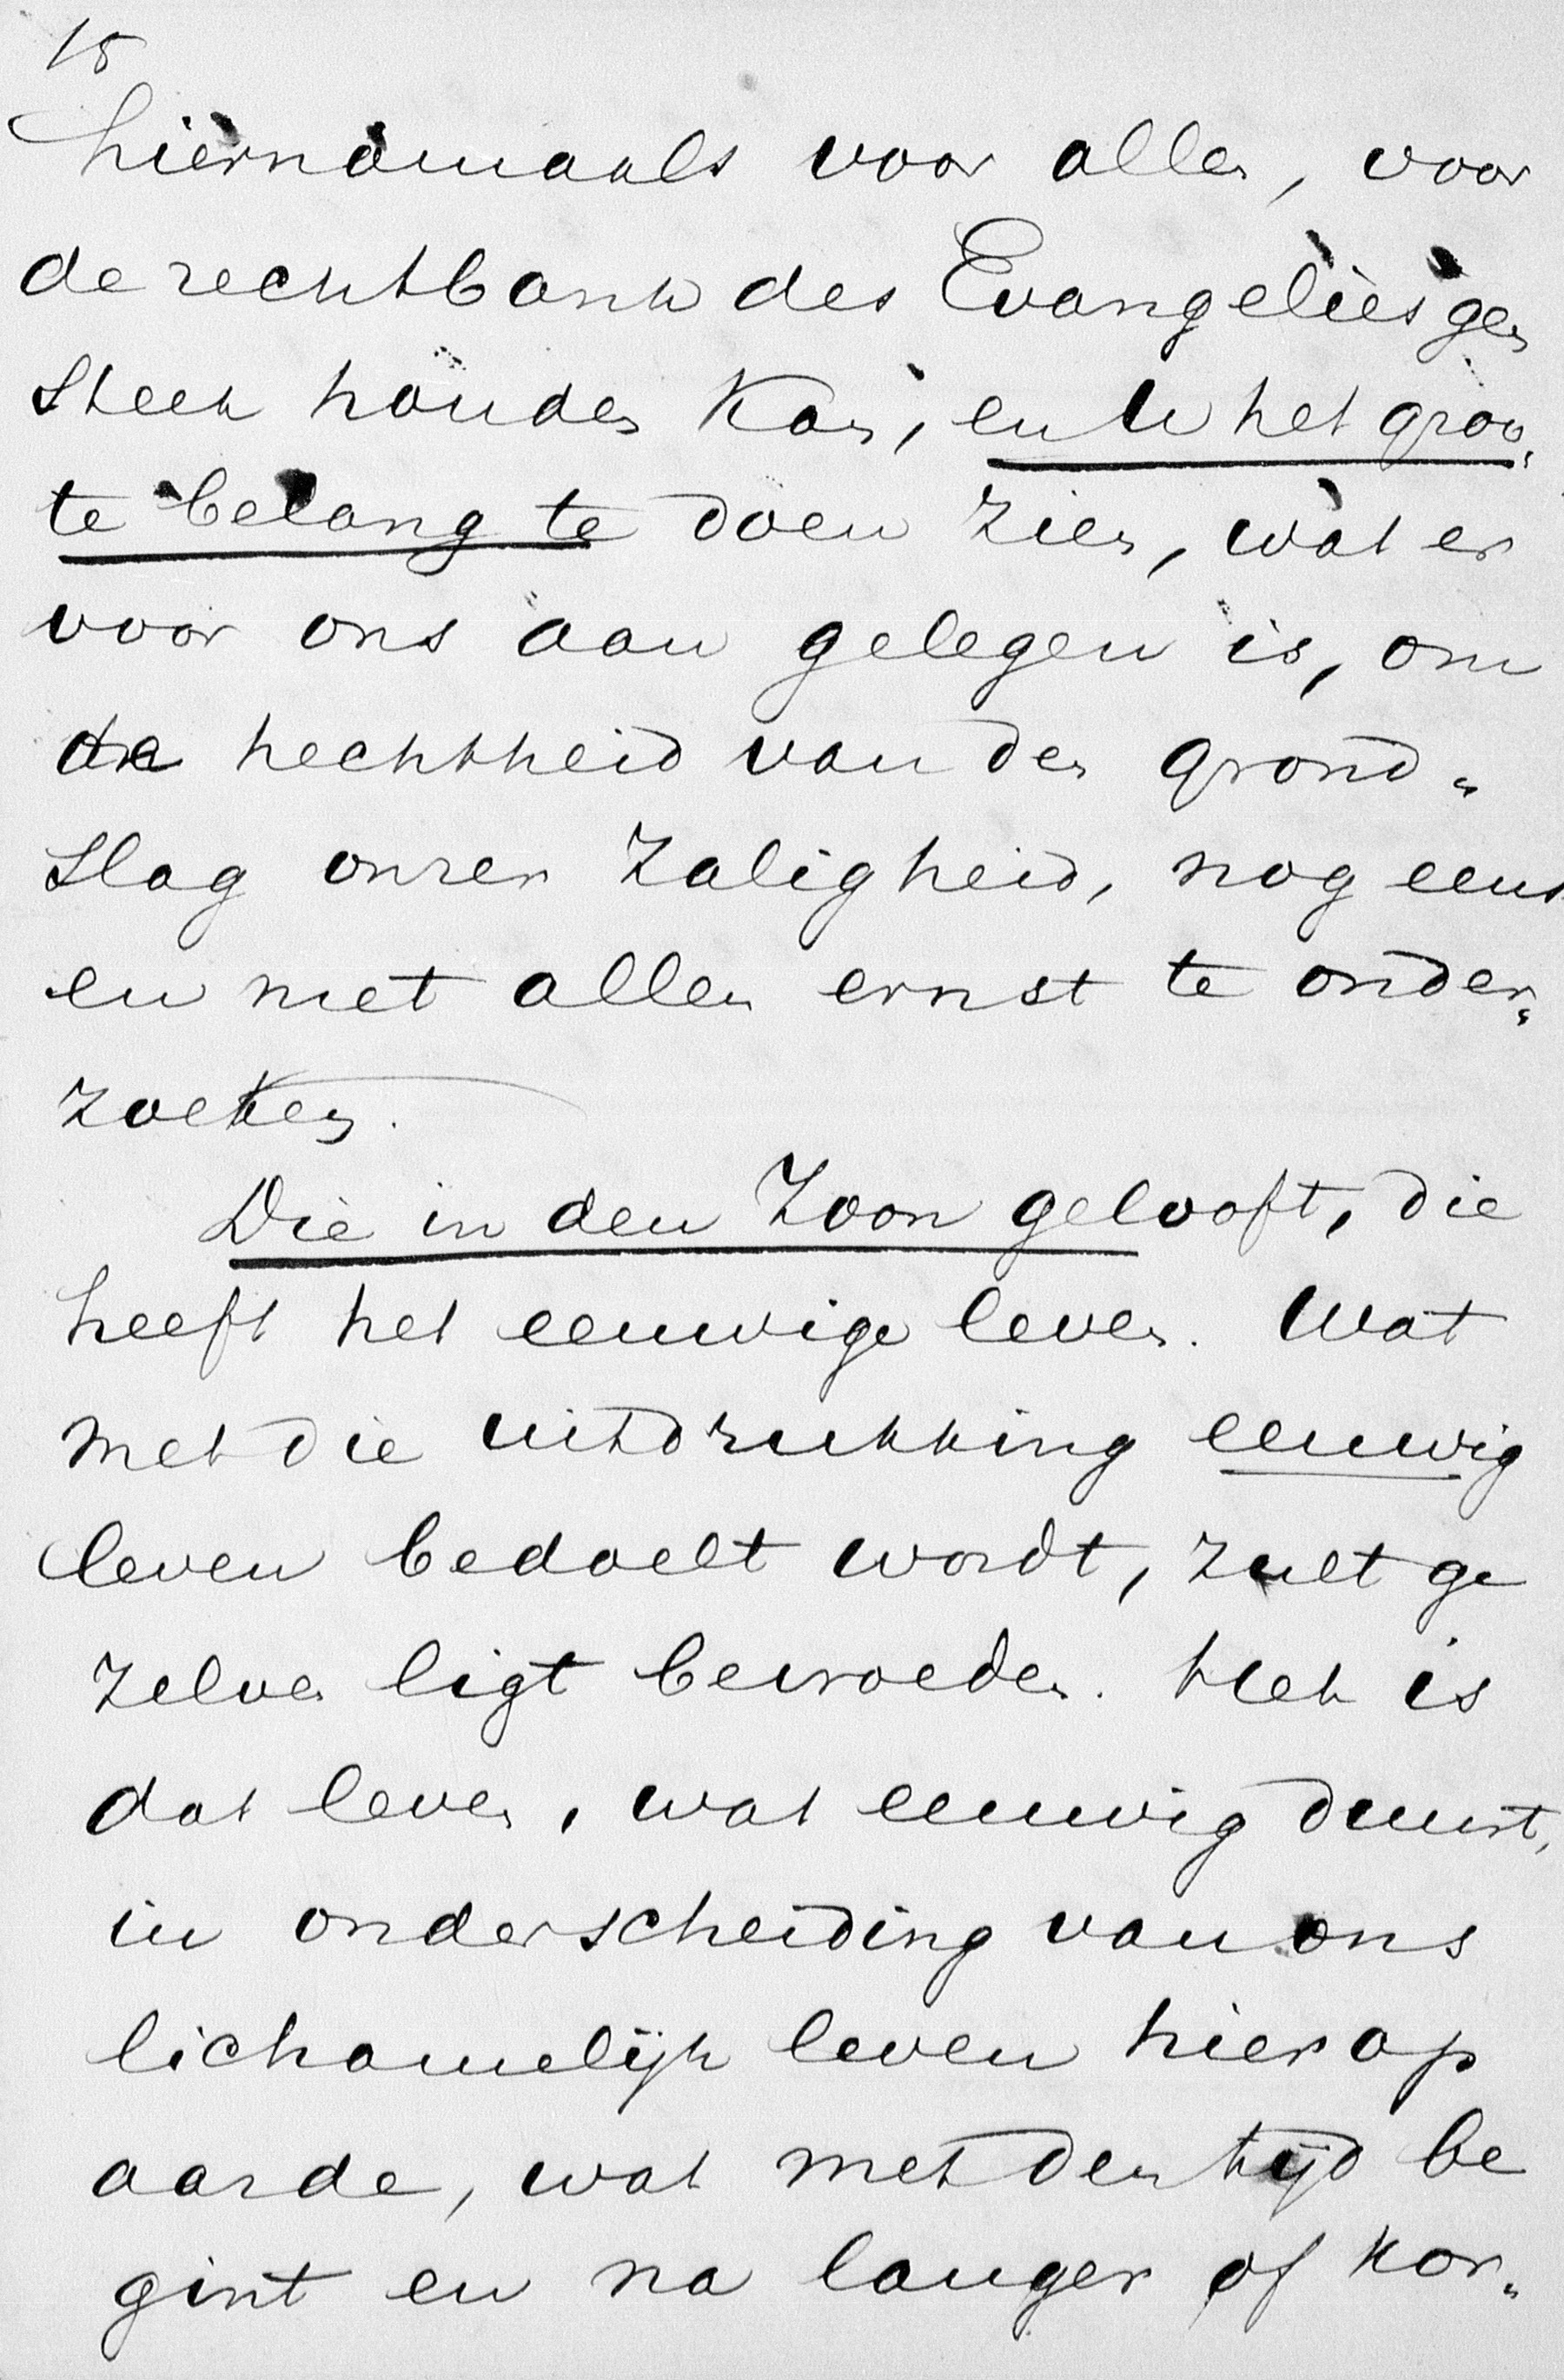 18
hiernamaals voor allen, voor
de rechtbank des Evangelies geen
steek houden kan, en U het groo„
te belang te doen zien, wat er
voor ons aan gelegen is, om
de hechtheid van den grond„
slag onzer zaligheid, nog eens
en met allen ernst te onder„
zoeken.
Die in den Zoon gelooft, die
heeft het eeuwige leven. Wat
met die uitdrukking eeuwig
leven bedoelt wordt, zult ge
zelven ligt bevroeden. Het is
dat leven, wat eeuwig duurt,
in onderscheiding van ons
lichamelijk leven hier op
aarde, wat met den tijd be
gint en na langer of kor„